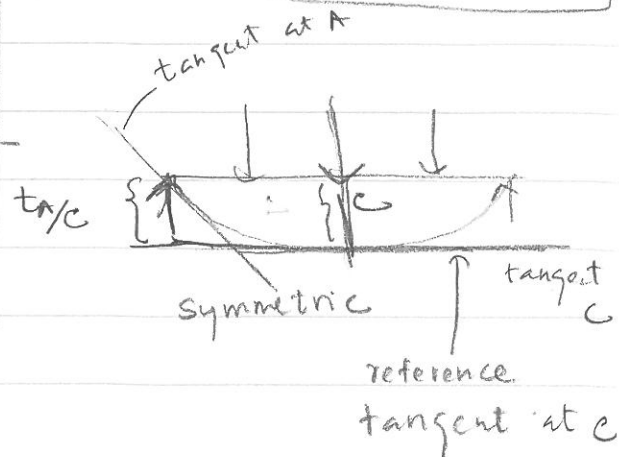 tangent at A
t A/C
C
symmetric
tangent
C
reference
tangent at C